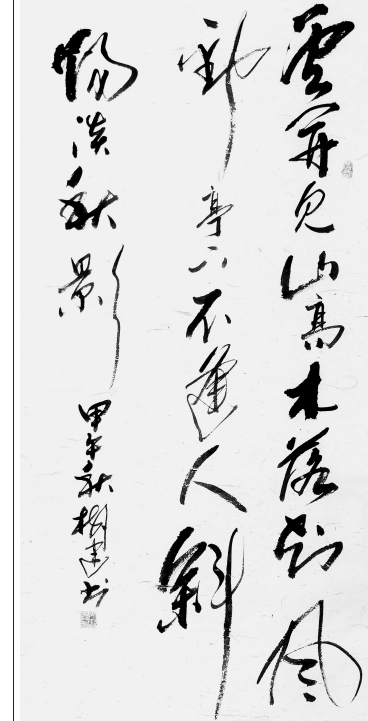 雲開見山高木落知風
勁亭下不逢人斜
陽淡秋影 甲午秋樹建書